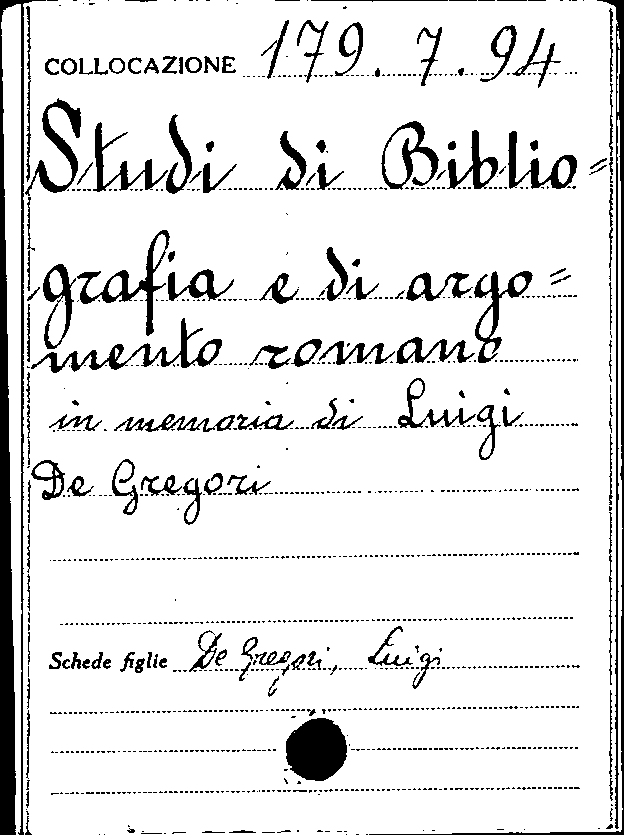 COLLOCAZIONE 179. 7. 94
Studi di Biblio=
grafia e di argo=
mento romano
in memoria di Luigi
De Gregori
Schede figlie De Gregori, Luigi